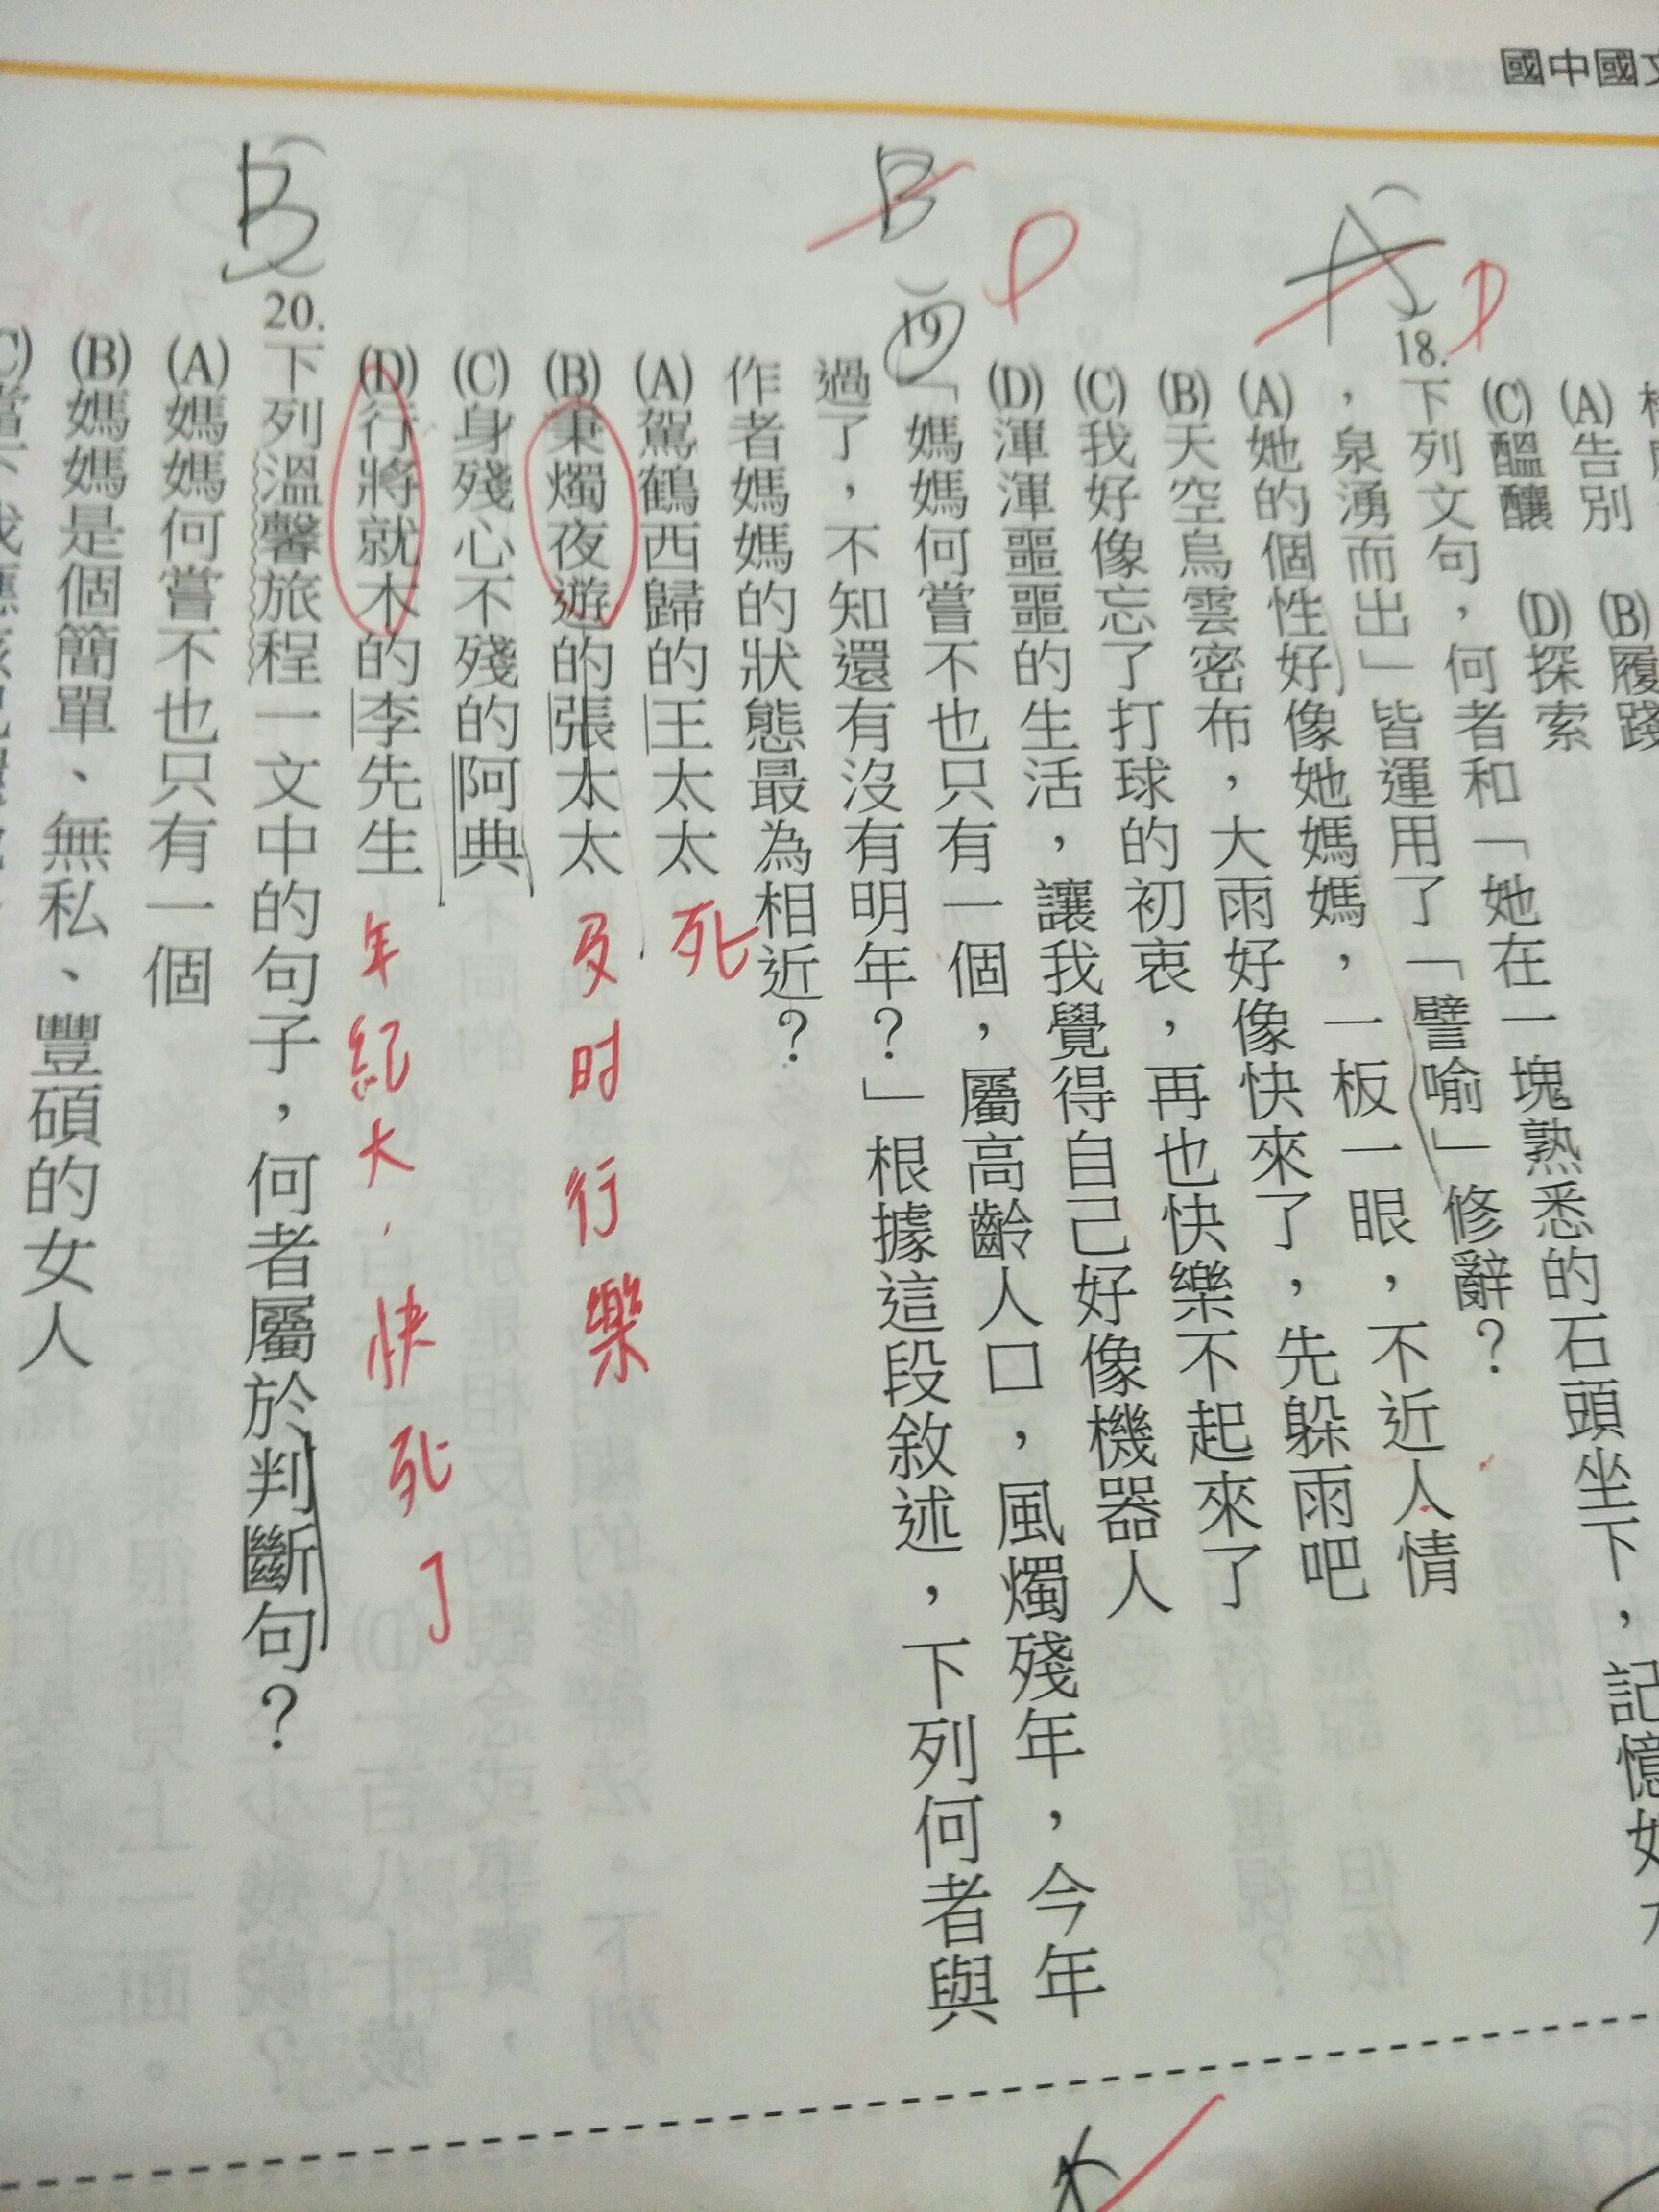 國中國文
(B)履踐
(A)告別
(D)探索
(C)醞釀
B
B
D
A
D
18.下列文句，何者和「她在一塊熟悉的石頭坐下，記憶如
，泉湧而出」皆運用了「譬喻」修辭？
(A)她的個性好像她媽媽，一板一眼，不近人情
(B)天空烏雲密布，大雨好像快來了，先躲雨吧
(C)我好像忘了打球的初衷，再也快樂不起來了
(D)渾渾噩噩的生活，讓我覺得自己好像機器人
19.「媽媽何嘗不也只有一個，屬高齡人口，風燭殘年，今年
過了，不知還有沒有明年？」根據這段敘述，下列何者與
作者媽媽的狀態最為相近？
(A)駕鶴西歸的王太太
死
(B)秉燭夜遊的張太太
及时行樂
(C)身殘心不殘的阿典
(D)行將就木的李先生
年紀大，快死了
20.下列溫馨旅程一文中的句子，何者屬於判斷句？
(A)媽媽何嘗不也只有一個
(B)媽媽是個簡單、無私、豐碩的女人